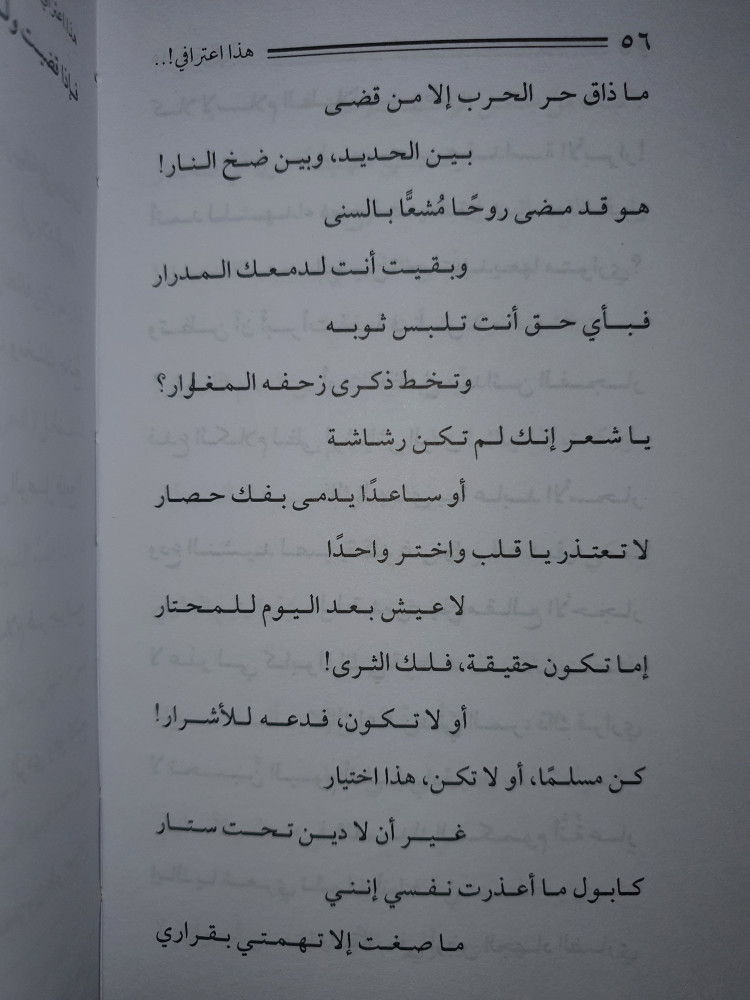 ٥٦ هذا اعترافي!..
ما ذاق حر الحرب إلا من قضى
بين الحديد، وبين ضخ النار!
هو قد مضى روحًا مُشعًّا بالسنى
وبقيت أنت لدمعك المدرار
فبأي حق أنت تلبس ثوبه
وتخط ذكرى زحفه المغوار؟
يا شعر إنك لم تكن رشاشة
أو ساعدًا يدمى بفك حصار
لا تعتذر يا قلب واختر واحدًا
لا عيش بعد اليوم للمحتار
إما تكون حقيقة، فلك الثرى!
أو لا تكون، فدعه للأشرار!
كن مسلمًا، أو لا تكن، هذا اختيار
غير أن لا دين تحت ستار
كابول ما أعذرت نفسي إنني
ما صغت إلا تهمتي بقراري